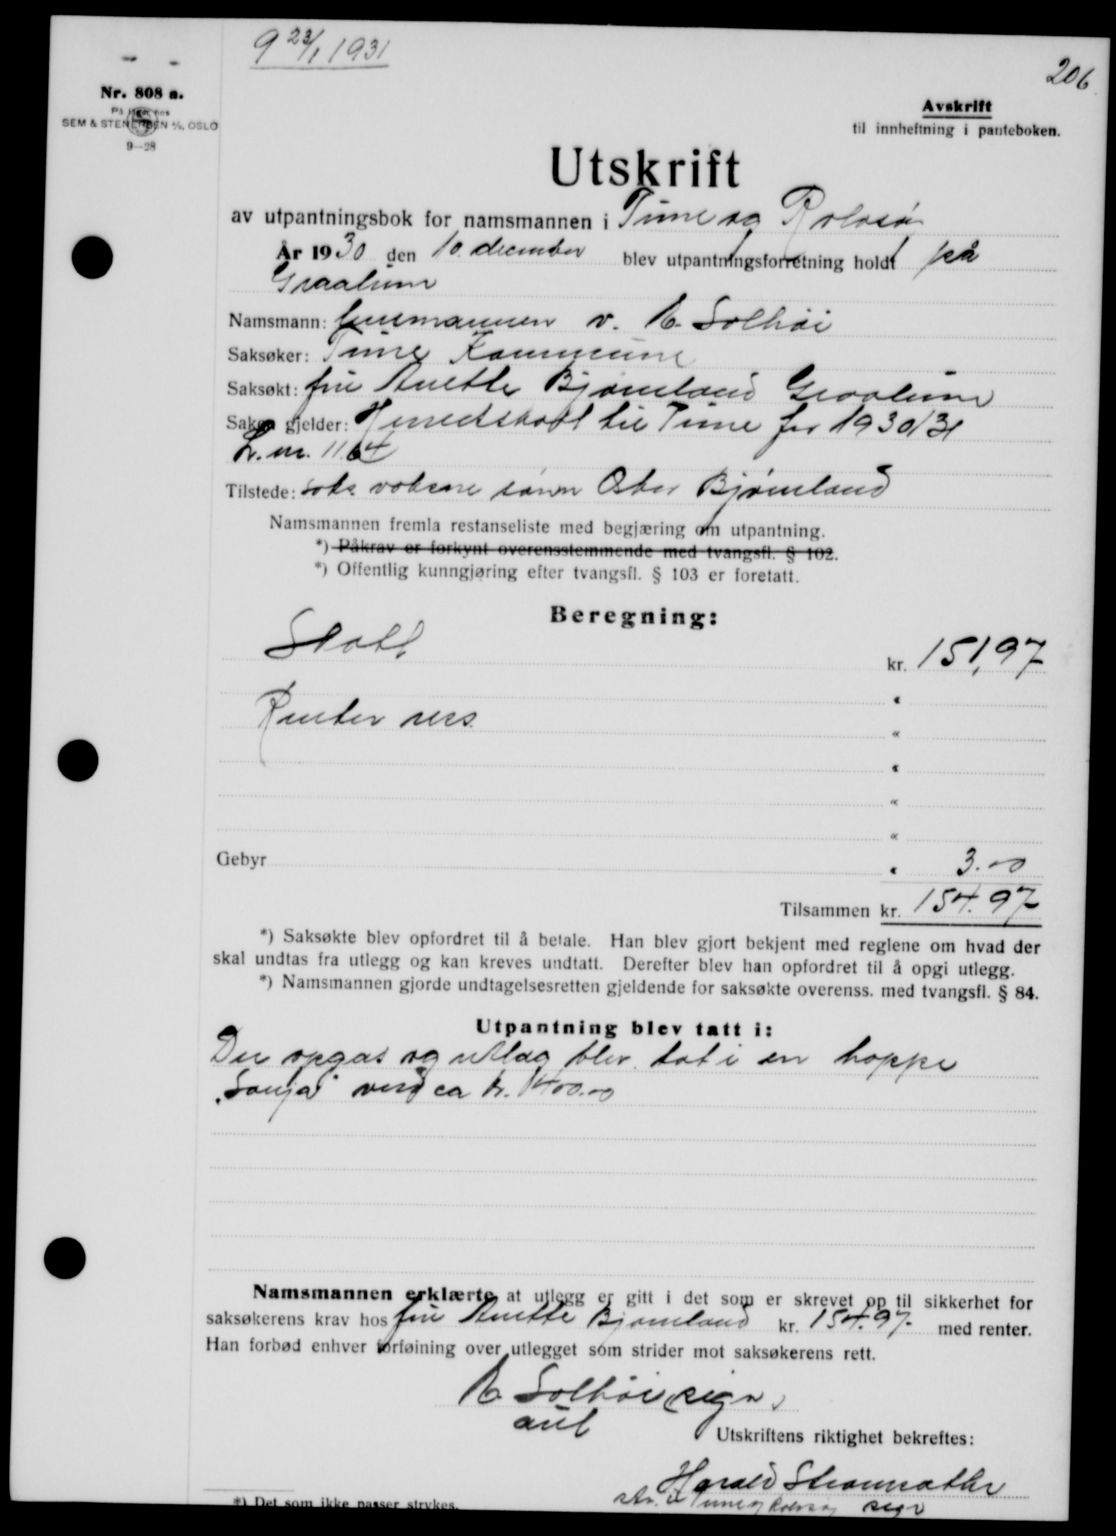 9 23/1 1931
206
Nr. 808 a.
På lager hos
SEM & STENERSEN A/S, OSLO
9—28
Avskrift
til innheftning i panteboken.
Utskrift
av utpantningsbok for namsmannen i Tune og Rolvsø
År 1930 den 10. december blev utpantningsforretning holdt på
Graalum
Namsmann: lensmannen v. A. Solhøi
Saksøker: Tune Kommune
Saksøkt: fru Anette Bjørneland Graalum
Saken gjelder: Herredskatt til Tune for 1930/31
L. nr. 1164
Tilstede: saks voksne sønn Bjørneland
Namsmannen fremla restanseliste med begjæring om utpantning.
*) Påkrav er forkynt overensstemmende med tvangsfl. § 102.
*) Offentlig kunngjøring efter tvangsfl. § 103 er foretatt.
Beregning:
Skatt kr. 151,97
"
Renter ress "
"
"
"
Gebyr " 3.00
Tilsammen kr. 154.97
*) Saksøkte blev opfordret til å betale. Han blev gjort bekjent med reglene om hvad der
skal undtas fra utlegg og kan kreves undtatt. Derefter blev han opfordret til å opgi utlegg.
*) Namsmannen gjorde undtagelsesretten gjeldende for saksøkte overenss. med tvangsfl. § 84.
Utpantning blev tatt i:
Der opgas og utlag blev tat i en hoppe
„Sonja" verd ca kr. 1400.00
Namsmannen erklærte at utlegg er gitt i det som er skrevet op til sikkerhet for
saksøkerens krav hos fru Anette Bjørneland kr. 154.97 med renter.
Han forbød enhver forføining over utlegget som strider mot saksøkerens rett.
A. Solhøi (sign)
aut
Utskriftens riktighet bekreftes:
Harald
Tune og Rolvsøy sign
*) Det som ikke passer strykes.